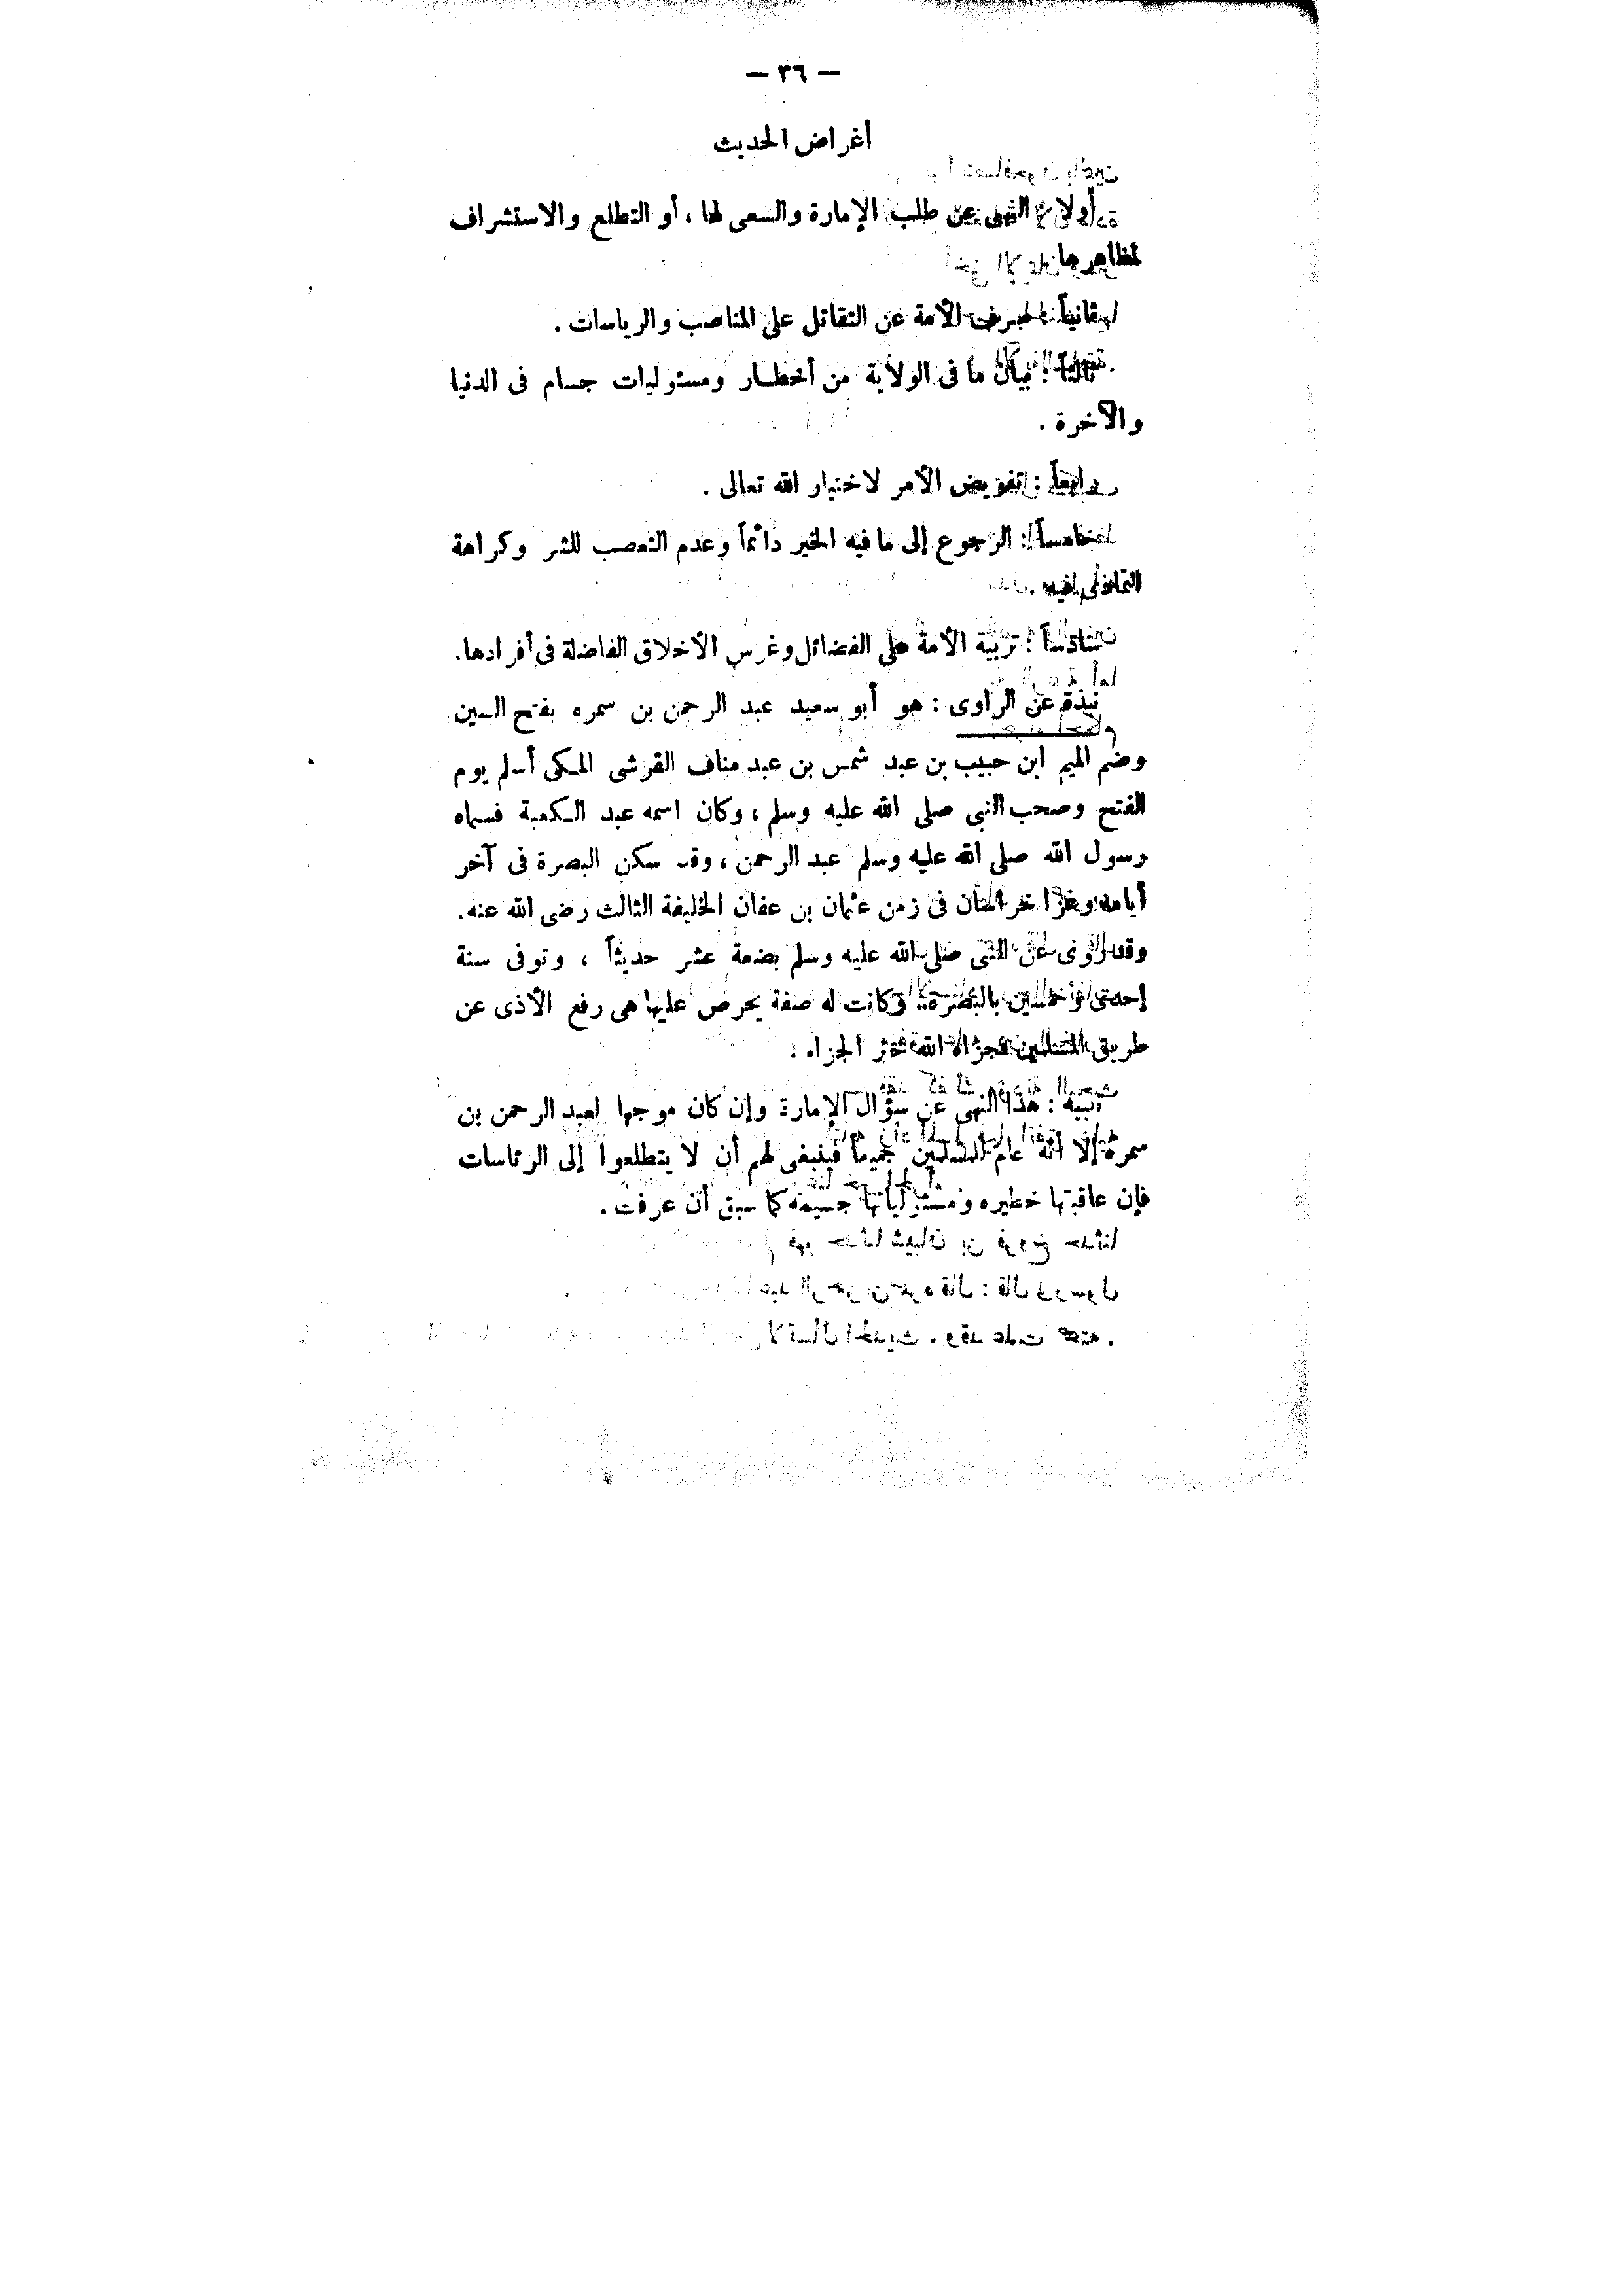 — ٣٦ —
أغراض الحديث
أولا : النهى عن طلب الإمارة والسعى لها ، أو التطلع والاستشراف
لمظاهرها
ثانياً : صرف الأمة عن التقاتل على المناصب والرياسات .
ثالثاً : بيان ما فى الولاية من أخطار ومسئوليات جسام فى الدنيا
والآخرة .
رابعاً : تفويض الأمر لاختيار الله تعالى .
خامساً : الرجوع إلى ما فيه الخير دائماً وعدم التعصب للشر وكراهة
التمادى فيه .
سادساً : تربية الأمة على الفضائل وغرس الأخلاق الفاضلة فى أفرادها .
نبذة عن الراوى : هو أبو سعيد عبد الرحمن بن سمره بفتح السين
وضم الميم ابن حبيب بن عبد شمس بن عبد مناف القرشى المكى أسلم يوم
الفتح وصحب النبى صلى الله عليه وسلم ، وكان اسمه عبد الكعبة فسماه
رسول الله صلى الله عليه وسلم عبد الرحمن ، وقد سكن البصرة فى آخر
أيامه وغزا خراسان فى زمن عثمان بن عفان الخليفة الثالث رضى الله عنه .
وقد روى عن النبى صلى الله عليه وسلم بضعة عشر حديثاً ، وتوفى سنة
إحدى وخمسين بالبصرة . وكانت له صفة يحرص عليها هى رفع الأذى عن
طريق المسلمين فجزاه الله خير الجزاء .
تنبيه : هذا النهى عن سؤال الإمارة وإن كان موجها لعبد الرحمن بن
سمرة إلا أنه عام للمسلمين جميعاً فينبغى لهم أن لا يتطلعوا إلى الرئاسات
فإن عاقبتها خطيره ومسئولياتها جسيمة كما سبق أن عرفت .